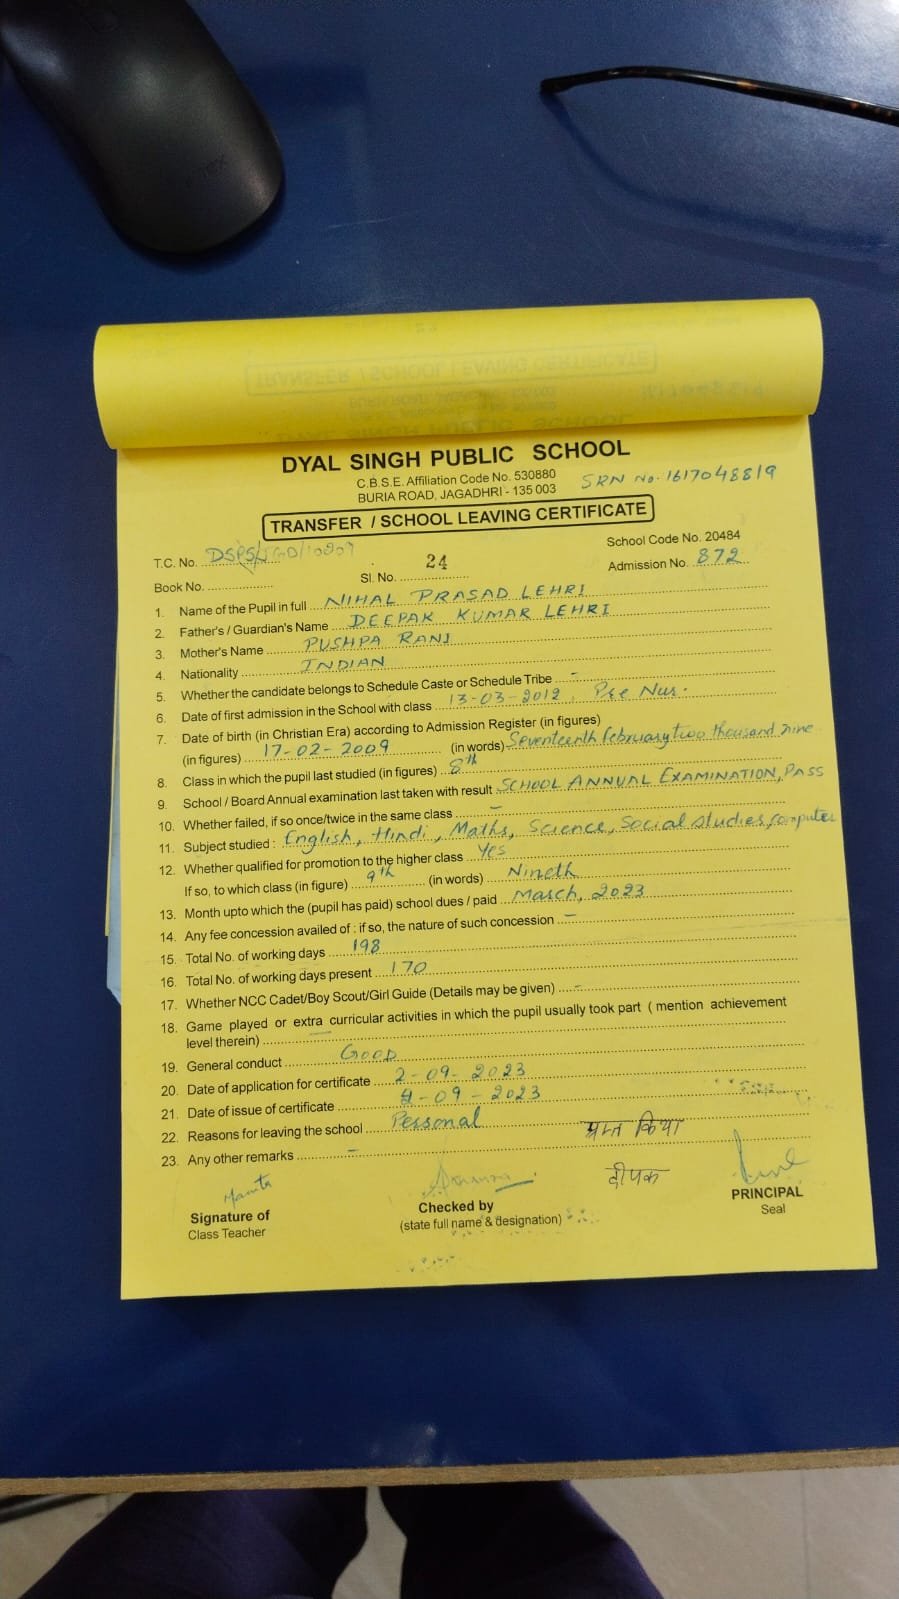 DYAL SINGH PUBLIC SCHOOL
C.B.S.E. Affiliation Code No. 530880
BURIA ROAD, JAGADHRI - 135 003
SRN No. 1617048819
TRANSFER / SCHOOL LEAVING CERTIFICATE
School Code No. 20484
T.C. No. DSPS/JGD/10209
Admission No. 872
Book No. Sl. No. 24
1. Name of the Pupil in full NIHAL PRASAD LEHRI
2. Father's / Guardian's Name DEEPAK KUMAR LEHRI
3. Mother's Name PUSHPA RANI
4. Nationality INDIAN
5. Whether the candidate belongs to Schedule Caste or Schedule Tribe -
6. Date of first admission in the School with class 13-03-2012, Pre Nur.
7. Date of birth (in Christian Era) according to Admission Register (in figures)
(in figures) 17-02-2009 (in words) Seventeenth february two thousand nine
8. Class in which the pupil last studied (in figures) 8th
9. School / Board Annual examination last taken with result SCHOOL ANNUAL EXAMINATION, PASS
10. Whether failed, if so once/twice in the same class -
11. Subject studied : English, Hindi, Maths, Science, Social studies, computer
12. Whether qualified for promotion to the higher class Yes
If so, to which class (in figure) 9th (in words) Nineth
13. Month upto which the (pupil has paid) school dues / paid March, 2023
14. Any fee concession availed of : if so, the nature of such concession -
15. Total No. of working days 198
16. Total No. of working days present 170
17. Whether NCC Cadet/Boy Scout/Girl Guide (Details may be given) -
18. Game played or extra curricular activities in which the pupil usually took part ( mention achievement
level therein)
19. General conduct GOOD
20. Date of application for certificate 2-09-2023
21. Date of issue of certificate 4-09-2023
22. Reasons for leaving the school Personal
23. Any other remarks -
प्राप्त किया
दीपक
Mamta
Signature of
Class Teacher
Checked by
(state full name & designation)
PRINCIPAL
Seal